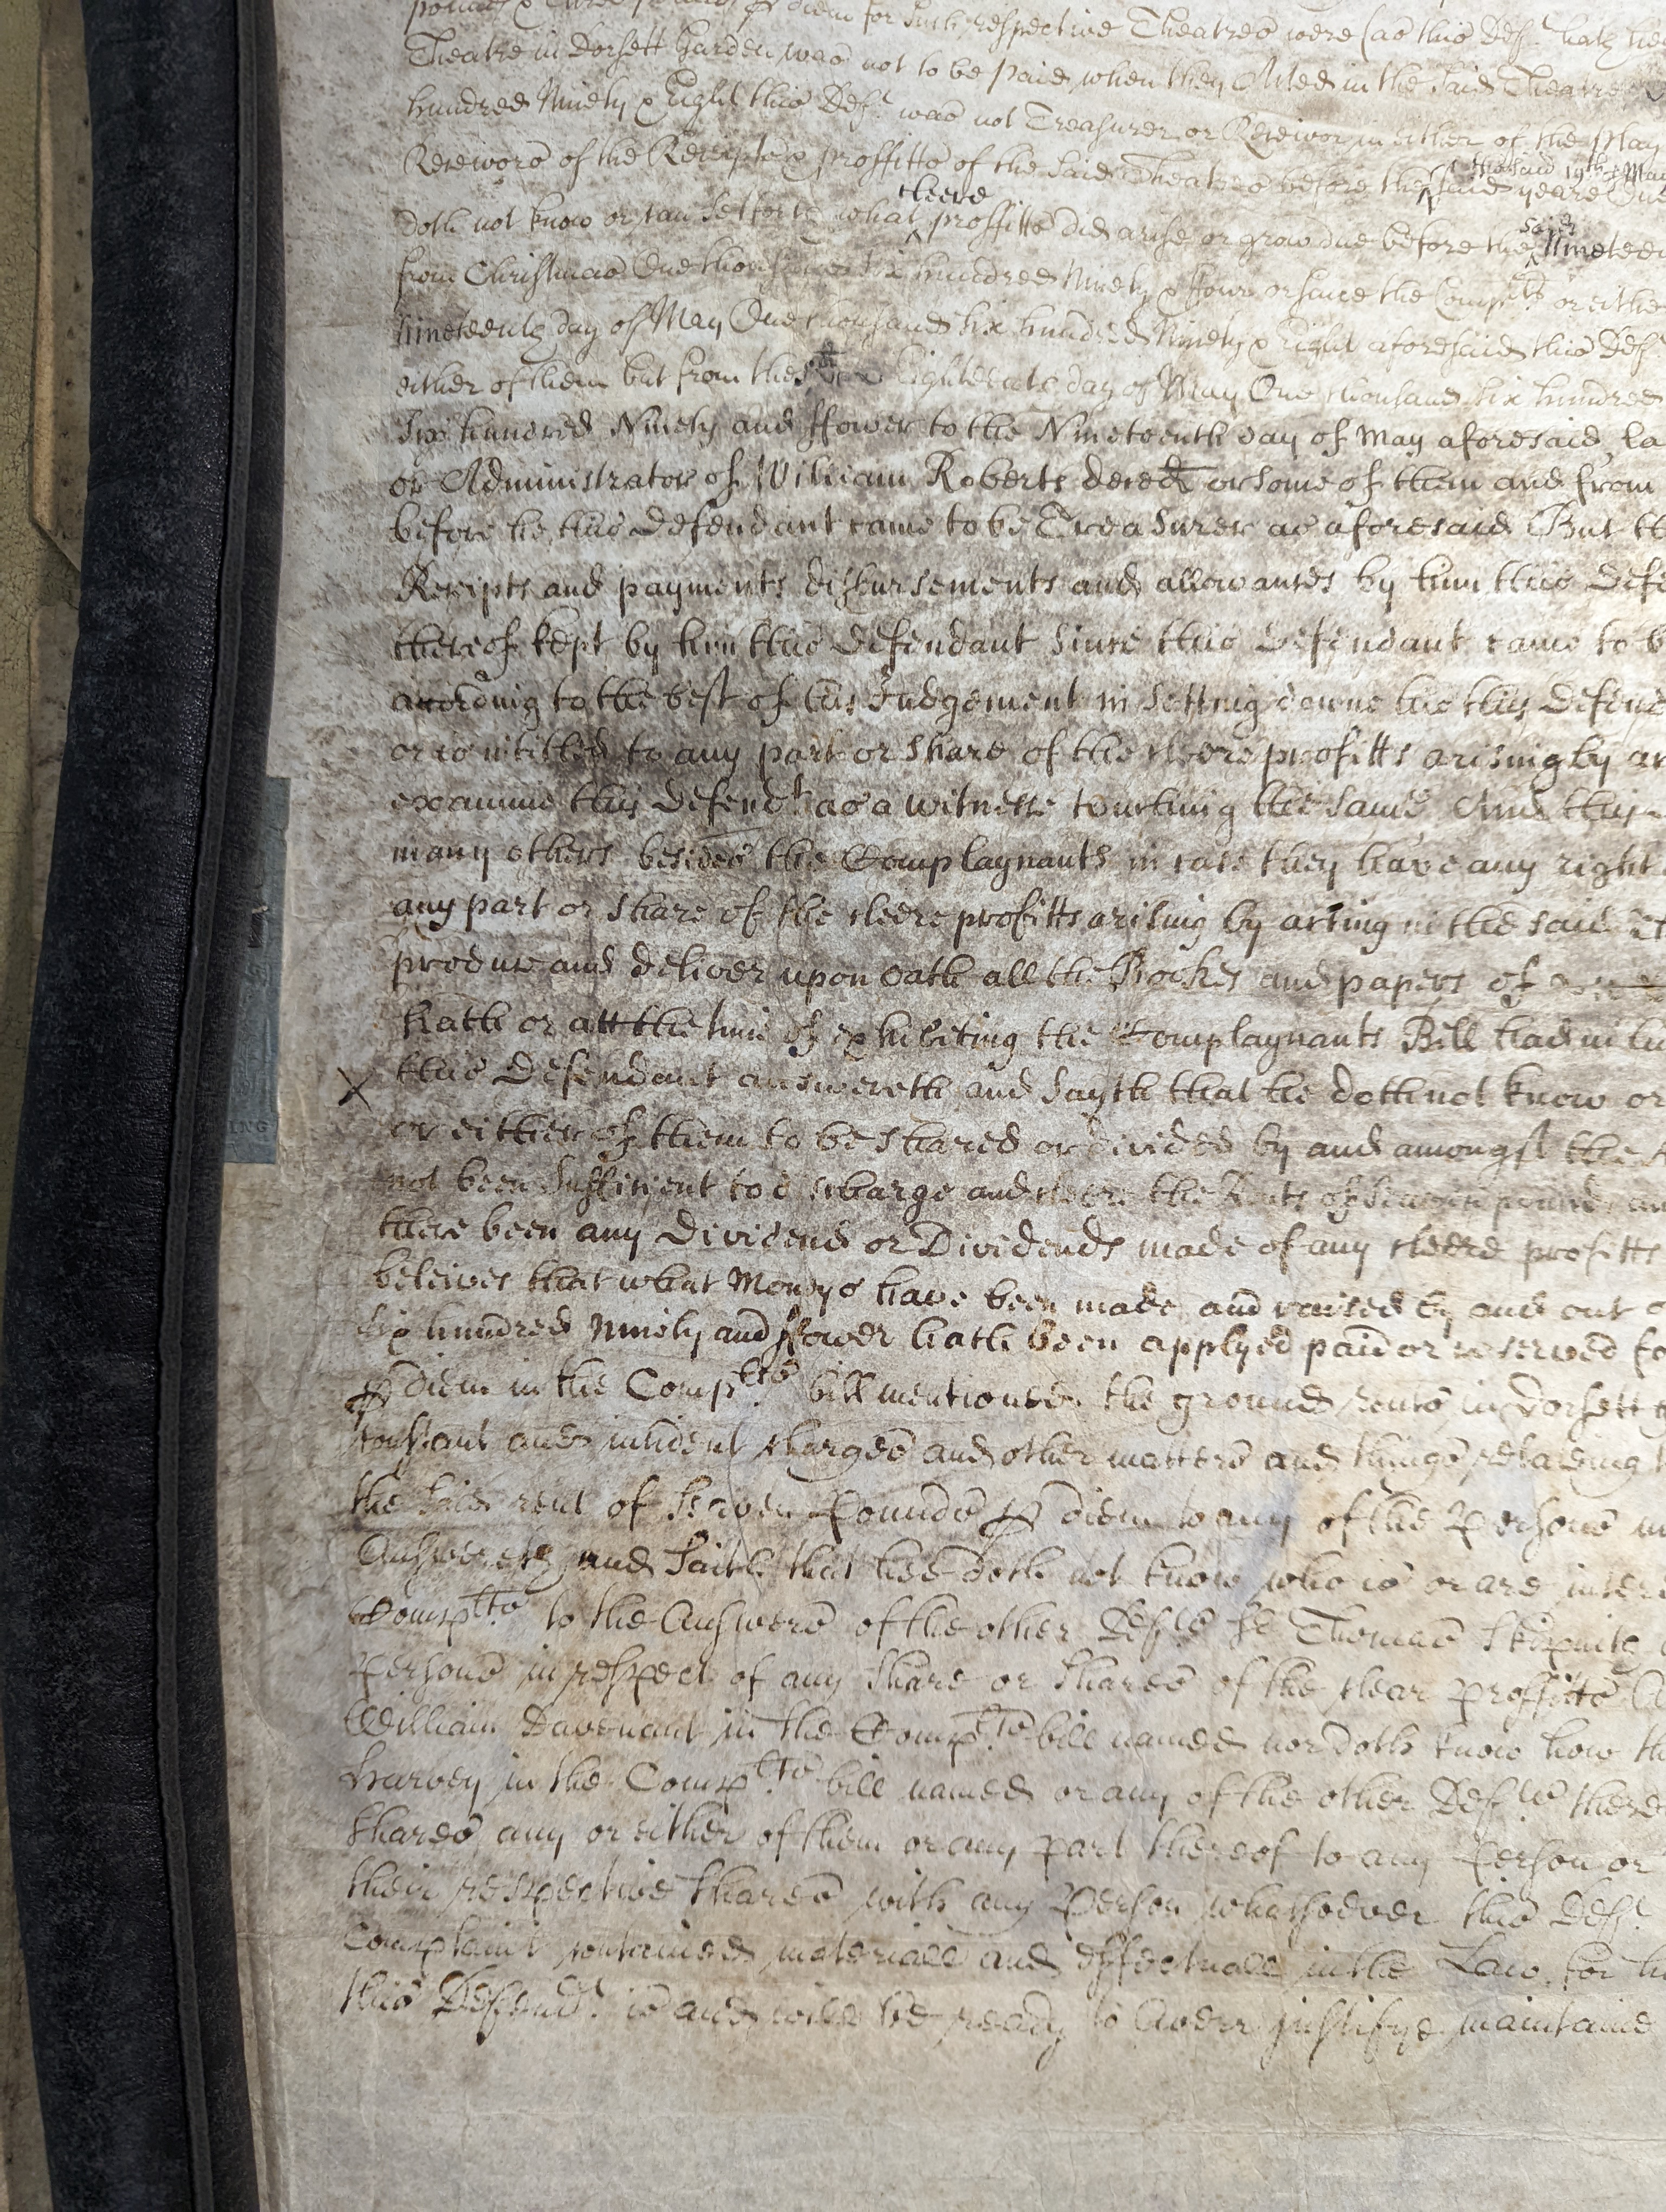 pounds & three pounds p diem for such respective Theatres were (as this Def.t hath
Theatre in Dorsett Garden was not to be paid when they Acted in the said Theatre
hundred Ninety & Eight this Def.t was not Treasurer or Receivor in either of the
Receivors of the Receipts & proffitts of the said Theatres before the said yeare One
the said 19th May
doth not know or can sett forth what cleere proffitts did arise or grow due before the said Nineteen
from Christmas One thousand six hundred Ninety & ffour or since the Comp.lts or eithe
Nineteenth day of May One thousand six hundred Ninety & Eight aforesaid this Def.t
either of them but from the Eighteenth day of May One thousand six hundred
Six hundred Ninety and ffower to the Nineteenth day of May aforesaid la
or Administrator of William Roberts deced or some of them and from
before he this Defendant came to be Treasurer as aforesaid But th
Receipts and payments disbursements and allowances by him this Defe
thereof kept by him this Defendant since this Defendant came to b
according to the best of his Judgement in setting downe this Defend
or is intitled to any part or share of the cleere profitts arising by a
examine this Defend.t as a witnesse touching the same And this
many others besides the Complaynants in case they have any right
any part or share of the cleere profitts arising by acting in the said Th
produce and deliver upon oath all the Bookes and papers of
hath or att the time of exhibiting the Complaynants Bill had in hi
X this Defendant answereth and sayth that he doth not know or
or either of them to be shared or divided by and amongst the
not been sufficient to discharge and cleere the Rents of seaven pounds
there been any Dividend or Dividends made of any cleere profitts
beleives that what Moneys have been made and raised by and out o
Six hundred Ninety and ffower hath been applyed paid or reserved fo
p diem in the Comp.lts bill mentioned the ground rents in Dorsett g
constant and incident charges and other matters and things relateing t
the said rent of seaven Pounds p diem to any of the Persons
Answereth and saith that hee doth not know who is or are inter
Comp.lts to the Answers of the other Def.ts Sr Thomas Skipwith
Persons in respect of any share or shares of the clear proffitts
William Davenant in the Comp.lts bill named nor doth know how th
Harvey in the Comp.lts bill named or any of the other Def.ts there
shares any or either of them or any part thereof to any Person or
their respective shares with any Person whatsoever this Def.t
Complaint contained materiall and effectuall in the Law for h
this Defend.t is and will be ready to Averr justifye maintaine
ING